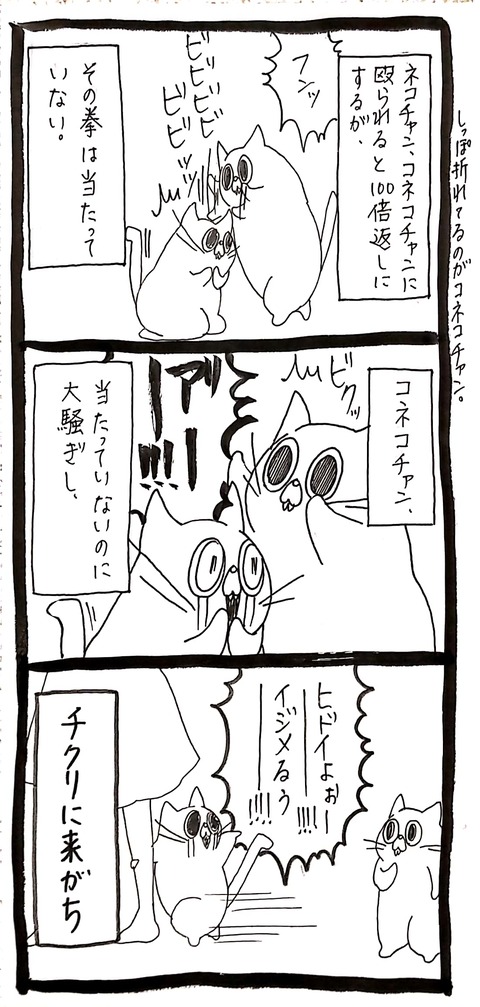 しっぽ折れてるのがコネコチャン。
ネコチャン、コネコチャンに
殴られると100倍返しに
するが、
フンッ
ビビビビ
ビビビッ
その拳は当たって
いない。
コネコチャン、
ビクッ
アーー!!!
当たっていないのに
大騒ぎし、
ヒドイよぉー!!!!
イジメるぅ
ーー!!!!
チクリに来がち